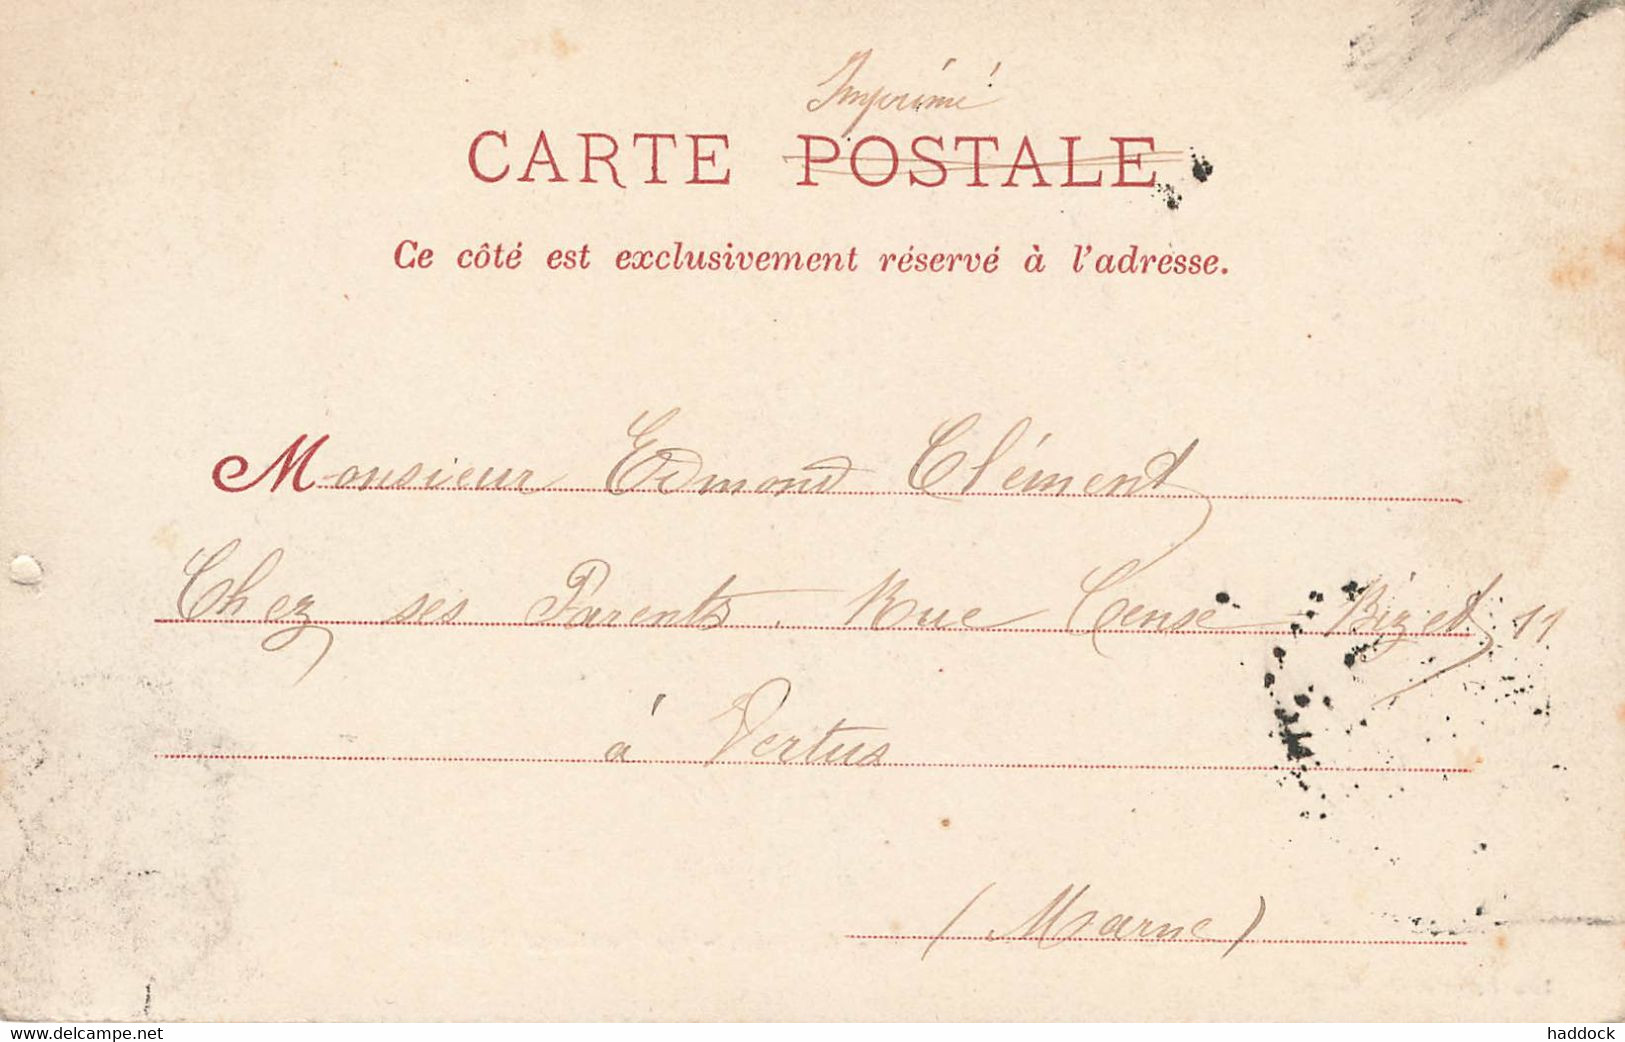 Imprimé
CARTE POSTALE
Ce côté est exclusivement réservé à l'adresse.
Monsieur Edmond Clément
Chez ses Parents. Rue Cense Bizet 11
à Vertus
(Marne)
www.delcampe.net
haddock